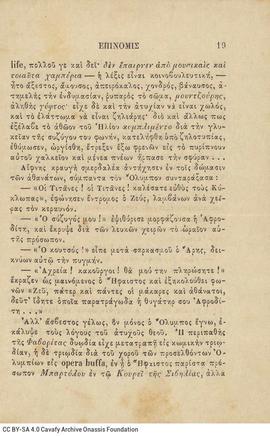 ΕΠΙΝΟΜΙΣ 19
life, πολλοῦ γε καὶ δεῖ· δὲν ἔπαιρνεν ἀπὸ μουσικαῖς καὶ
τοιαῦτα χαμπέρια — ἡ λέξις εἶναι κοινοβουλευτική, —
ἦτο ἄξεστος, ἄμουσος, ἀπειρόκαλος, χονδρός, βάναυσος, ἀ-
τημελὴς τὴν ἐνδυμασίαν, ῥυπαρὸς τὸ σῶμα, μουντζούρης,
ἀληθὴς γύφτος· εἶχε δὲ καὶ τὴν ἀτυχίαν νὰ εἶναι χωλός,
καὶ τὸ ἐλάττωμα νὰ εἶναι ζηλιάρης· διὸ καὶ ἄλλως πως
ἐξέλαβε τὸ ἀθῶον τοῦ Ἡλίου κομπλιμέντο διὰ τὴν γλυ-
κεῖαν τῆς συζύγου του φωνήν, κατελήφθη ὑπὸ ζηλοτυπίας,
ἐθύμωσεν, ὠργίσθη, ἔτρεξεν ἔξω φρενῶν εἰς τὸ πυρίπνουν
αὐτοῦ χαλκεῖον καὶ μένεα πνέων ἥρπασε τὴν σφῦραν . . . .
Αἴφνης κραυγὴ σμερδαλέα ἀντήχησεν ἐν τοῖς δώμασιν
τῶν ἀθανάτων, σύμπαντα τὸν Ὄλυμπον συνταράξασα:
— «Οἱ Τιτᾶνες! οἱ Τιτᾶνες! καλέσατε εὐθὺς τοὺς Κύ-
κλωπας», ἐφώνησεν ἔντρομος ὁ Ζεύς, λαμβάνων ἀνὰ χεῖ-
ρας τὸν κεραυνόν.
— «Ὁ σύζυγός μου!» ἐψιθύρισε μορφάζουσα ἡ Ἀφρο-
δίτη, καὶ ἔκρυψε διὰ τῶν λευκῶν χειρῶν τὸ ὡραῖον αὐ-
τῆς πρόσωπον.
— «Ὁ κουτσός!» εἶπε μετὰ σαρκασμοῦ ὁ Ἄρης, δει-
κνύων αὐτῇ τὴν πυγμήν.
— «Ἀχρεῖα! κακοῦργοι! θὰ μοῦ τὴν πληρώσητε!»
ἔκραζεν ὡς μαινόμενος ὁ Ἥφαιστος καὶ ἐξηκολούθει φω-
νῶν «Ζεῦ, πάτερ καὶ πάντες οἱ μάκαρες καὶ ἀθάνατοι,
δεῦτ' ἴδητε ὁποῖα παρατράγωδα ἡ θυγάτηρ σου Ἀφροδί-
τη . . .»
Ἀλλ' ἄσβεστος γέλως, ὃν μόνος ὁ Ὄλυμπος ἔγνω, ἐ-
κάλυψε τοὺς λόγους τοῦ ἀτυχοῦς θεοῦ. Ἡ περιπαθὴς
τῆς Φαβορίτας δυῳδία εἶχε μετατραπῆ εἰς κωμικὴν τριῳ-
δίαν, ἡ δὲ τριῳδία διὰ τοῦ χοροῦ τῶν προσελθόντων Ὀ-
λυμπίων εἰς opera buffa, ἐν ᾗ ὁ Ἥφαιστος παρίστα πρό-
σωπον Μπαρτόλου ἐν τῷ Κουρεῖ τῆς Σιβηλίας, ἀλλὰ
CC BY-SA 4.0 Cavafy Archive Onassis Foundation